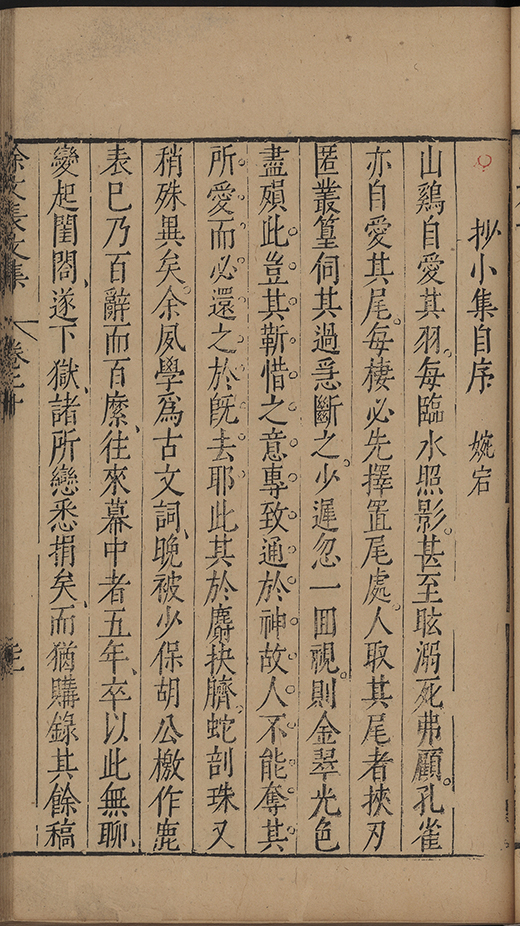 抄小集自序　婉宕
山鷄自愛其羽。每臨水照影。甚至眩溺死弗顧。孔雀
亦自愛其尾。每棲必先擇置尾處。人取其尾者挾刃
匿叢篁伺其過急斷之。少遲忽一回視。則金翠光色
盡殞。此豈其靳惜之意專致通於神。故人不能奪其
所愛而必還之於旣去耶。此其於麝抉臍。蛇剖珠又
稍殊異矣。余夙學爲古文詞、晚被少保胡公檄作鹿
表。已乃百辭而百縻、往來幕中者五年、卒以此無聊、
變起閨閤、遂下獄、諸所戀悉捐矣、而猶購錄其餘稿
徐文長文集　卷二十